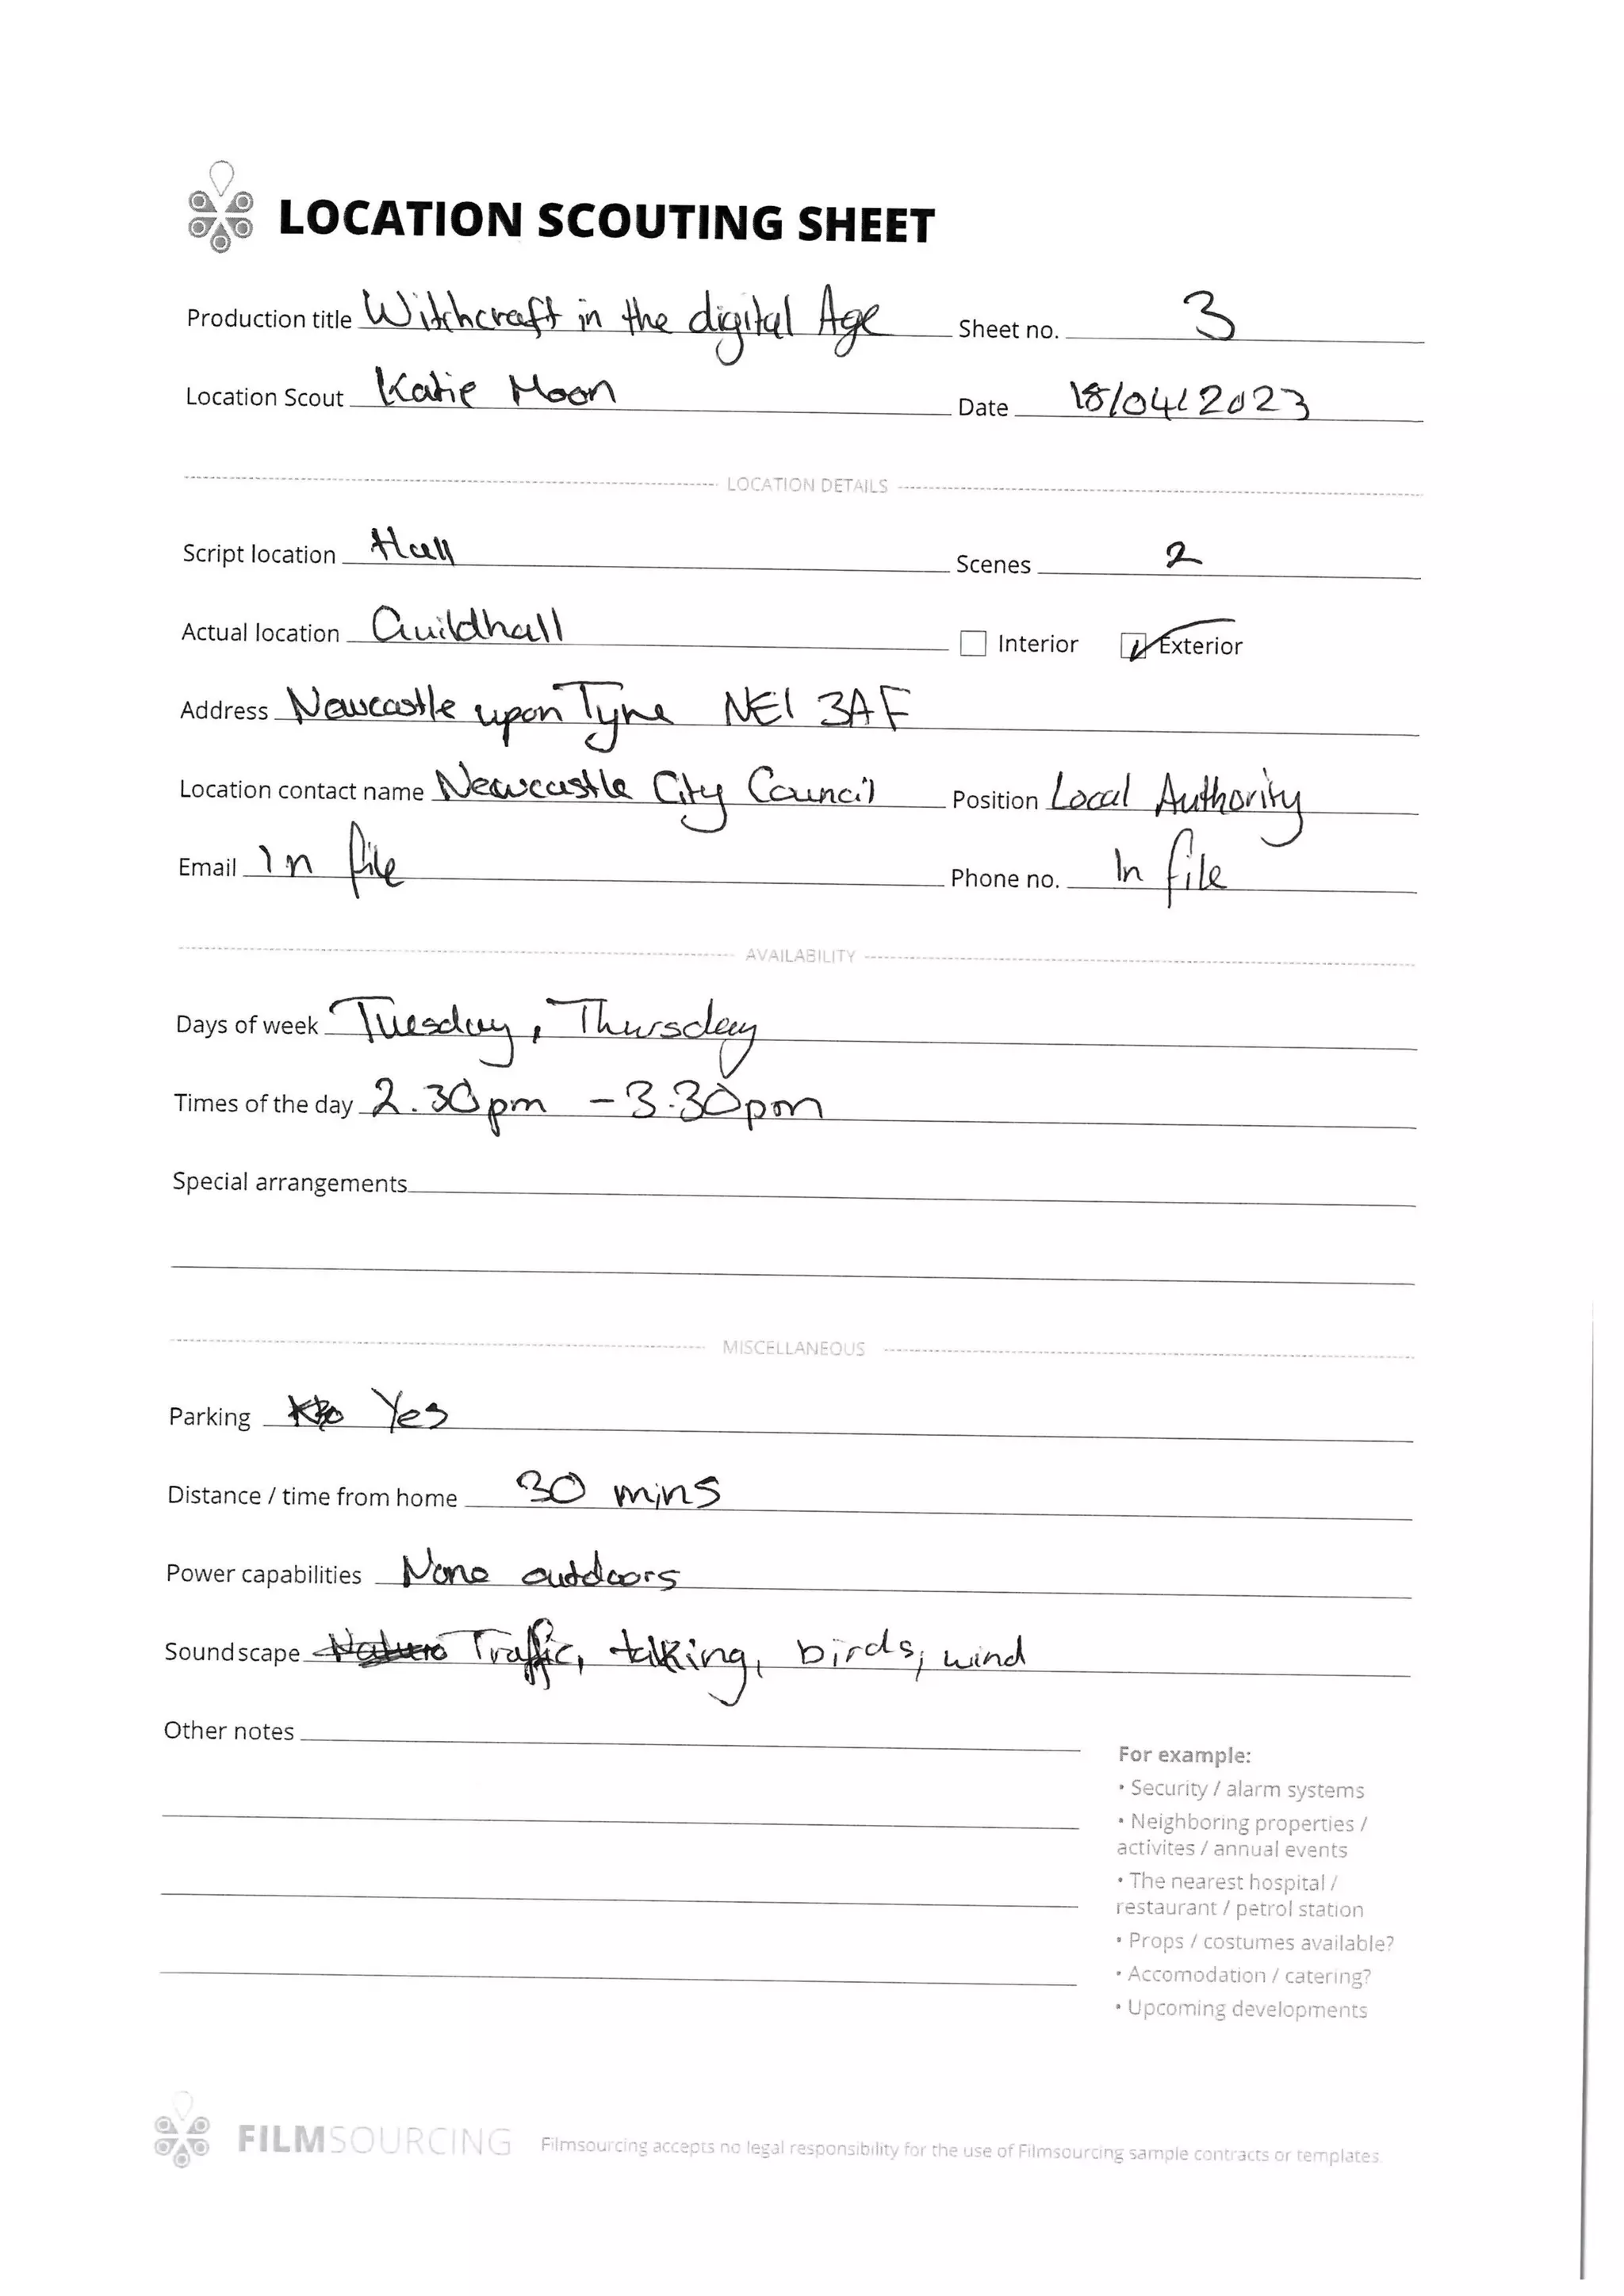 LOCATION SCOUTING SHEET
Production title Withhcraft in the digital Age Sheet no. 3
Location Scout Katie Moon Date 18/04/2023
LOCATION DETAILS
Script location Hall Scenes 2
Actual location Guildhall Interior Exterior
Address Newcastle upon Tyne NE1 3AF
Location contact name Newcastle City Council Position Local Authority
Email In file Phone no. In file
AVAILABILITY
Days of week Tuesday, Thursday
Times of the day 2.30pm - 3.30pm
Special arrangements
MISCELLANEOUS
Parking Yes
Distance / time from home 30 mins
Power capabilities None outdoors
Soundscape Traffic, talking, birds, wind
Other notes
For example:
• Security / alarm systems
• Neighboring properties /
activites / annual events
• The nearest hospital /
restaurant / petrol station
• Props / costumes available?
• Accomodation / catering?
• Upcoming developments
FILMSOURCING Filmsourcing accepts no legal responsibility for the use of Filmsourcing sample contracts or templates.